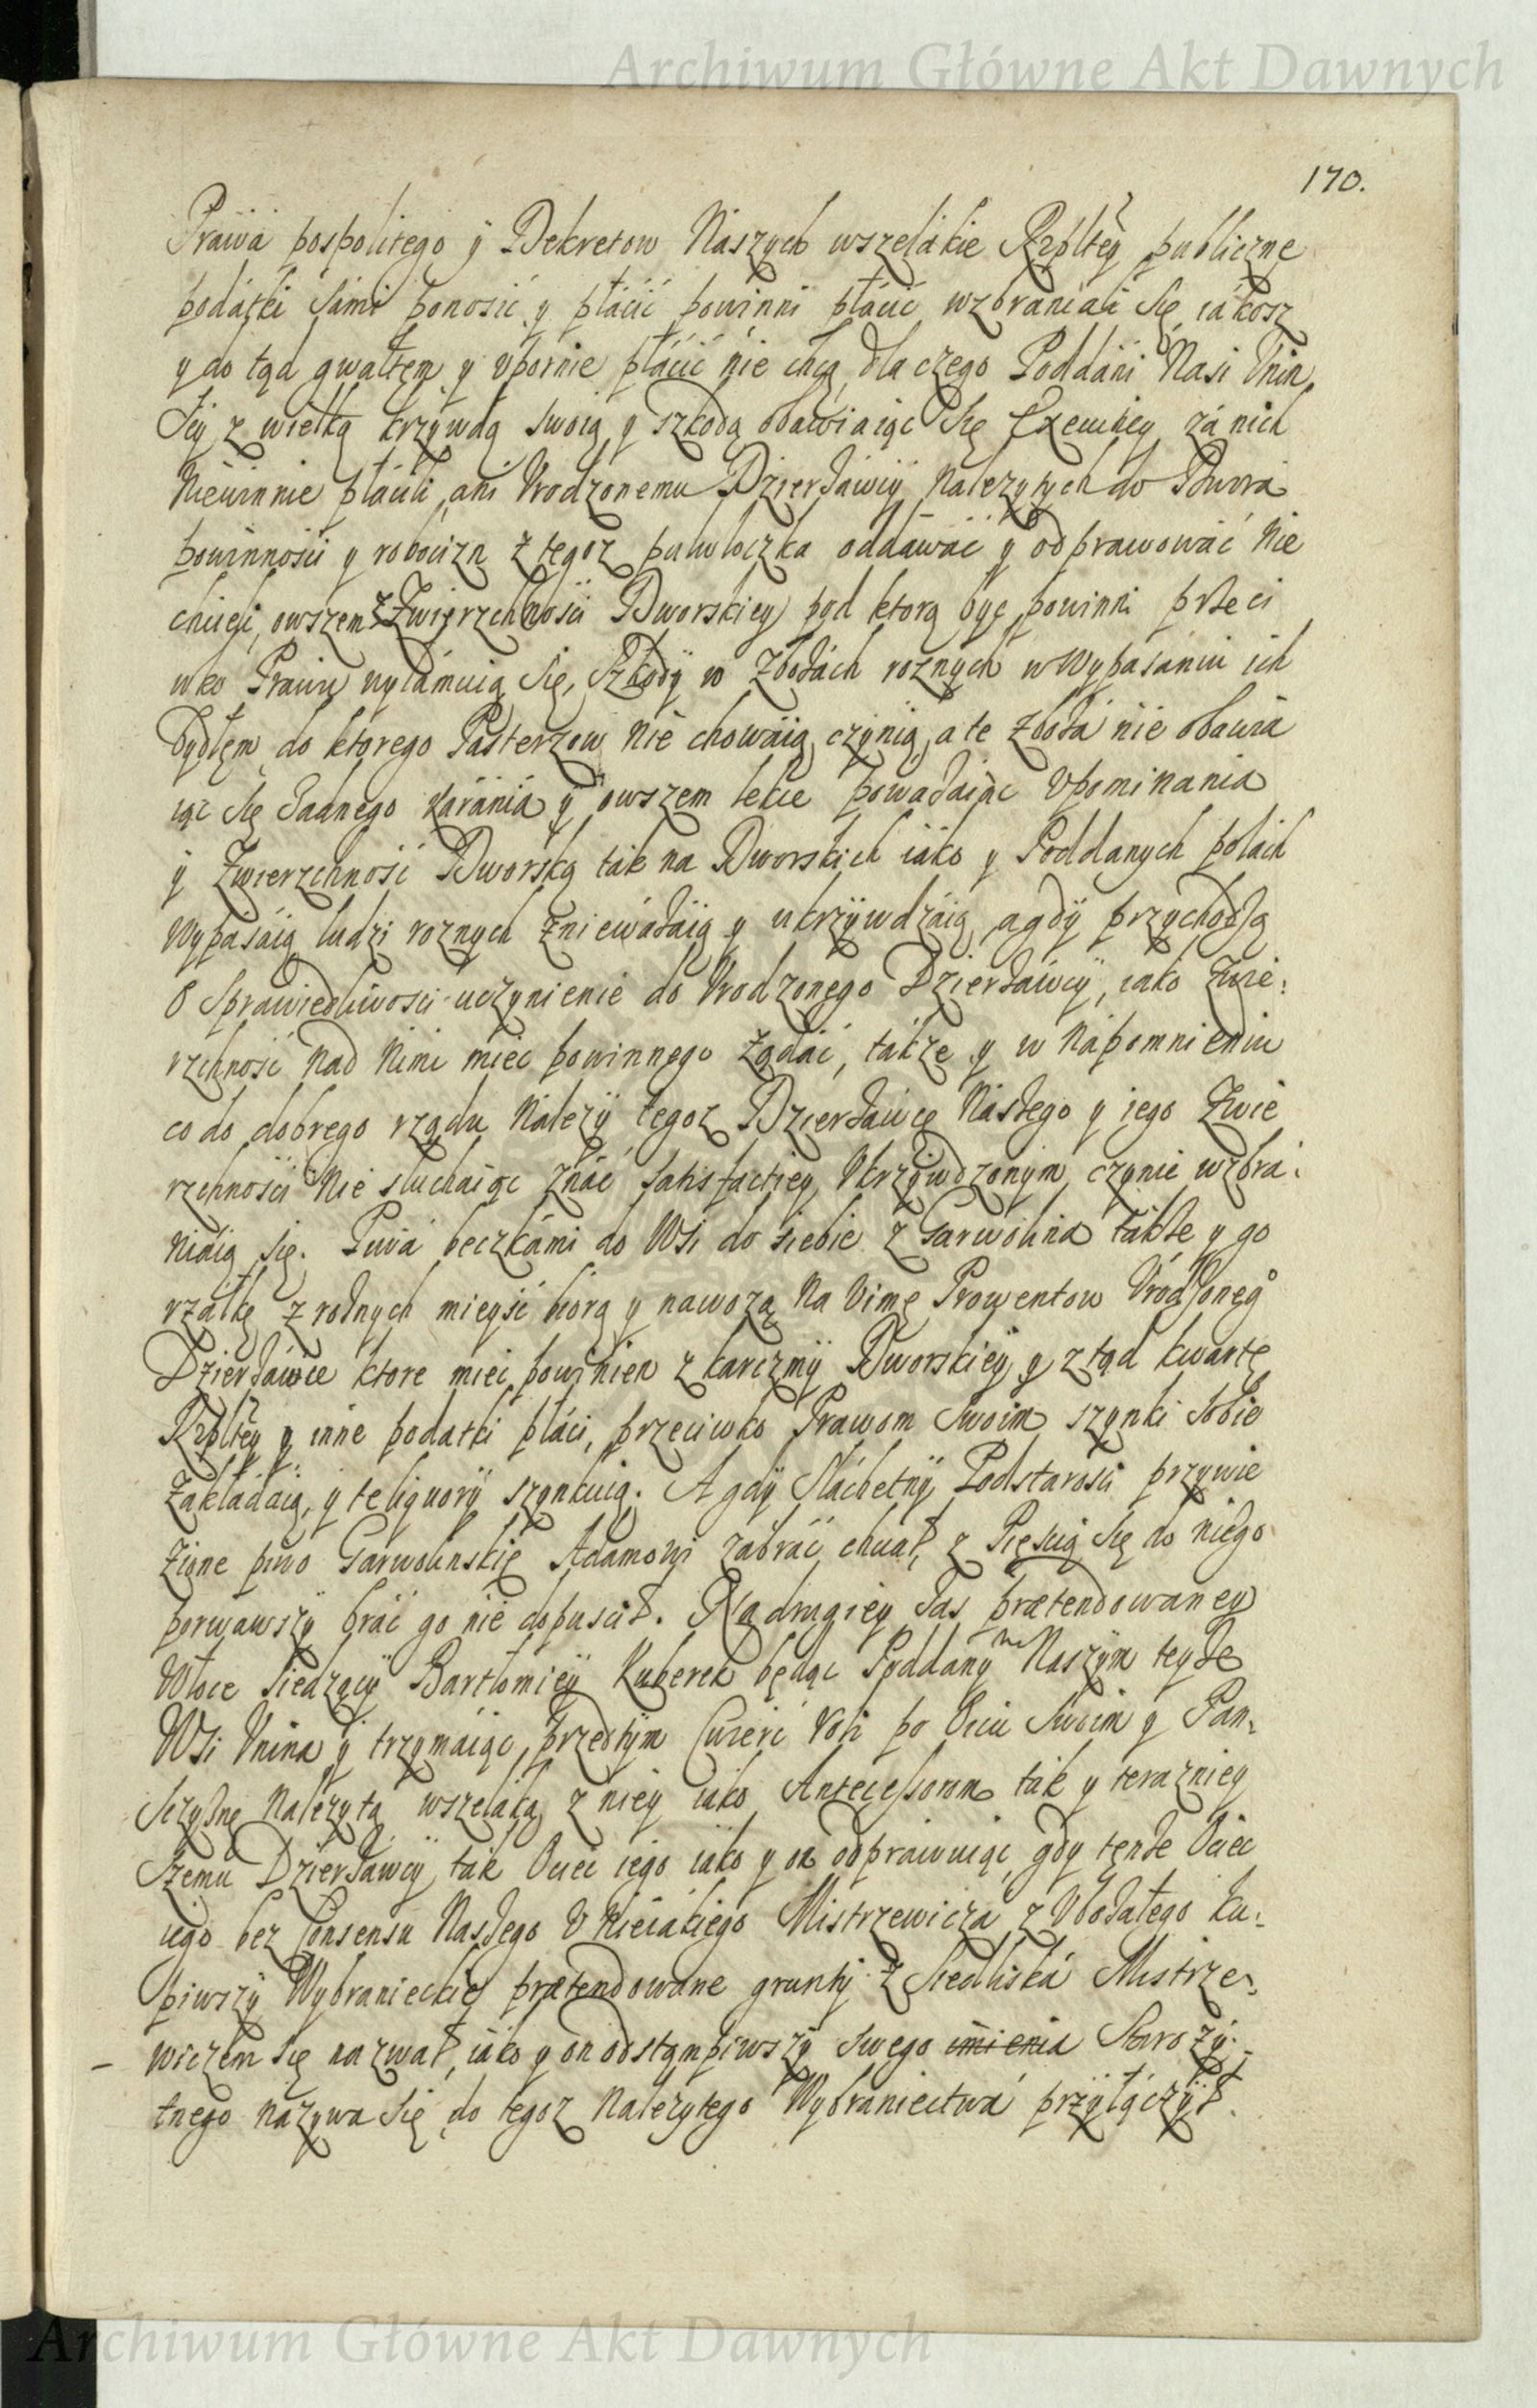 Archiwum Główne Akt Dawnych
170.
Prawa pospolitego ÿ Dekretow Naszych wszelákie Rzpltey publiczne
podátki sámi ponosić y płácić powinni płácić wzbraniali się, iákosz
y do tąd gwałtem y vpornie płácić nie chcą, dla czego Poddáni Nasi Vnin,
scy z wielką krzywdą swoią y szkodą obawiaiąc się Exewkcÿ zá nich
niewinnie płácili, ani Vrodzonemu Dzierżáwcÿ należytych do Dwora
powinnośći y robocizn z tegoż pułwłoczka oddáwáć y odprawowáć nie
chcieli, owszem z Zwierzchnośći Dworskiey pod ktorą być powinni przeci
wko Prawu wyłámuią się, Szkodÿ w Zbożách roznych w wypásániu ich
bydłem, do ktorego Pásterzow nie chowáią, czynią, a te zbożá nie obawia
iąc się żadnego karánia y owszem lekce poważáiąc vpominania
ÿ Zwierzchność Dworską ták na Dworskich iáko y Poddanych polách
wypasáią, ludzi roznych znieważáią y ukrzywdzáią, a gdÿ przychodzą
o sprawiedliwośći uczynienie do Vrodzonego Dzierżáwcÿ, iako Zwie:
rzchność nad nimi mieć powinnego żądáć, tákże y w nápomnieniu
co do dobrego rządu należÿ tegoż Dzierżáwcę Nászego y iego Zwie
rzchnośći nie słucháiąc znáć satisfactiey Vkrzywdzonym czynić wzbra:
niáią się. Piwá beczkámi do Wsi do siebie z Garwolina tákże y go
rzáłkę z roznych mieysć biorą y nawożą na Vimę Prowentow Vrodzoneg°
Dzierżáwce ktore mieć powinien z karczmÿ Dworskieÿ y z tąd kwartę
Rzpltey y inne podatki płáci, przeciwko Prawom Swoim szynki sobie
zakładáią, y te liquorÿ szynkuią. A gdÿ Sláchetnÿ Podstarośći przywie
zione piwo Garwolinskie Adamowi zabráć chciał, z Pięścią się do niego
porwawszÿ bráć go nie dopuscił. Na drugiey zás prætendowaney
Włoce siedzącÿ Bartłomieÿ Kuberek będąc Poddanÿm Naszÿm teyże
Wsi Vnina y trzymáiąc przedtÿm ćwierć roli po Oicu swoim y Pan:
sczyznę należytą wszeláką z nieÿ iáko Antecessorom ták y terazniey
szemu Dzierżáwcÿ, ták Ociec iego iáko y on odprawuiąc, gdy tenże Ociec
iego bez Consensu Nászego v nieiákiego Mistrzewiczá z Vbożałego ku:
piwszÿ Wybranieckie prætendowane gruntÿ z siedliská Mistrze:
wiczem się nazwał, iáko y on odstąmpiwszÿ swego imienia Starożÿ:
tnego názywa się, do tegoż należytego Wybraniectwá przyłączÿł.
Archiwum Główne Akt Dawnych